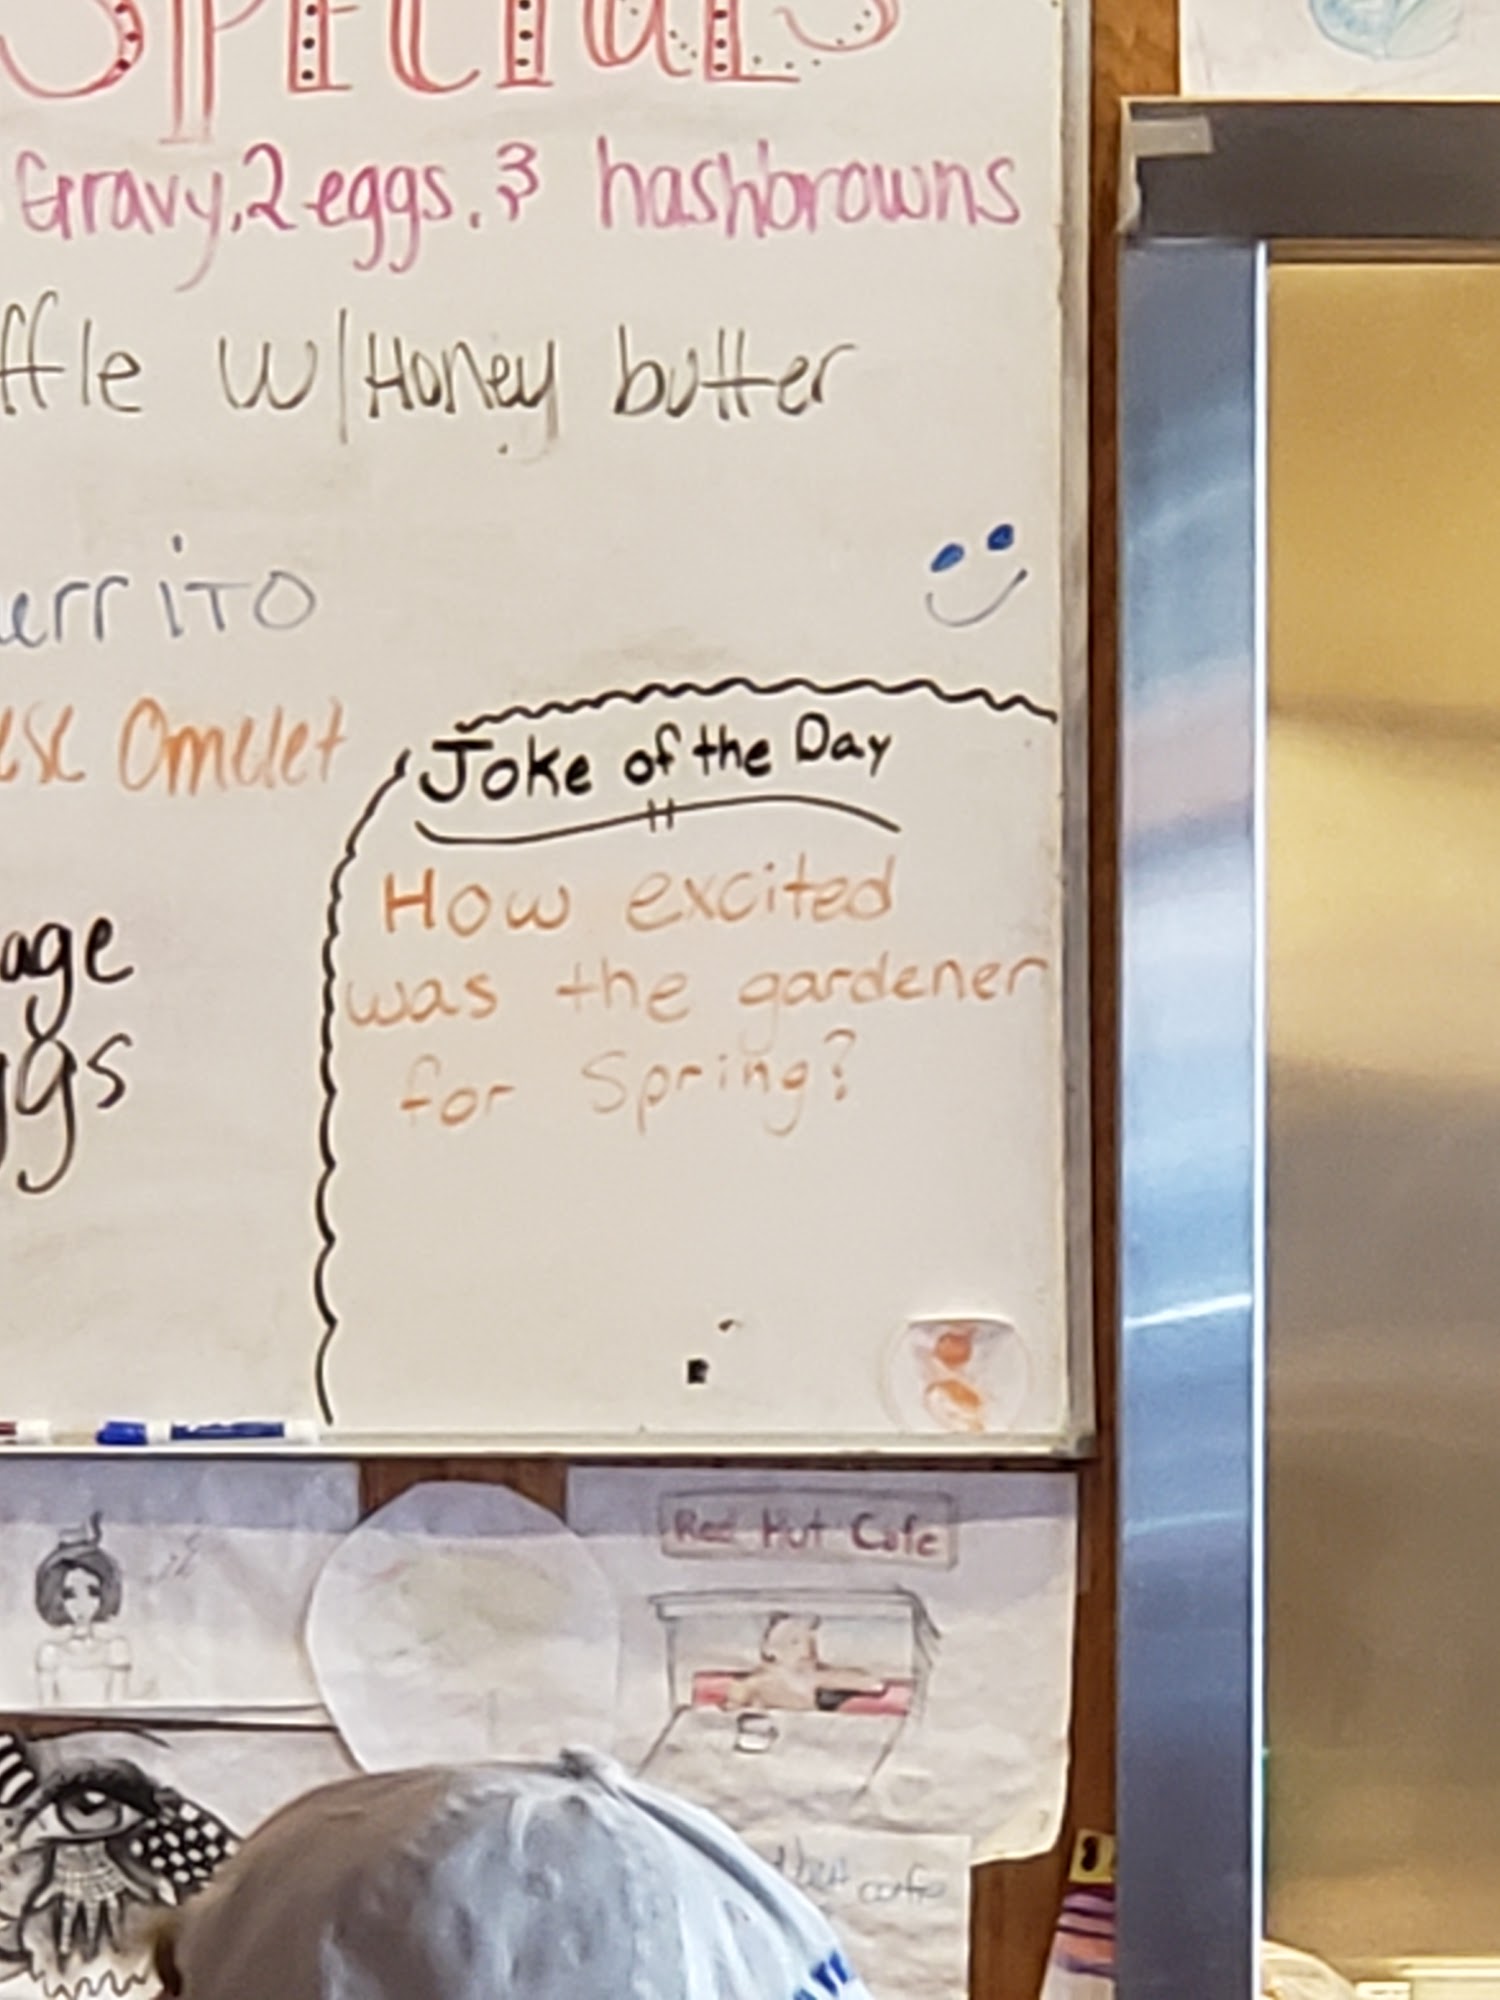 SPECIALS
Gravy, 2 eggs. & hashbrowns
ffle w/Honey butter
urrito
ese Omelet
Joke of the Day
age
ggs
How excited
was the gardener
for Spring?
Red Hut Cafe